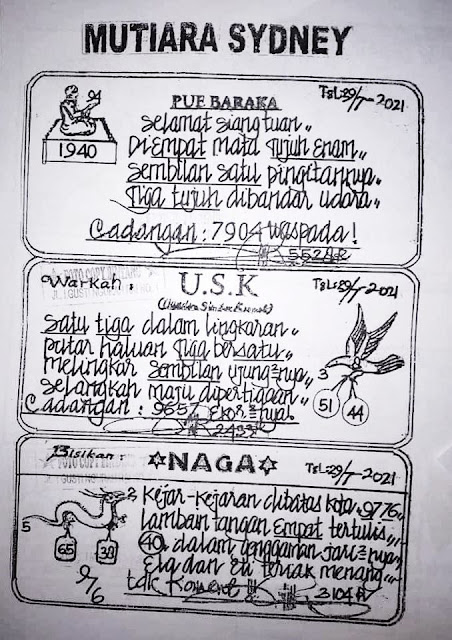 MUTIARA SYDNEY
94
1940
PUE BARAKA
Tsl:29/7-2021
Selamat siang tuan "
Di Empat mata Tujuh Enam "
Sembilan Satu pingitannya "
Tiga tujuh dibandar udara "
Cadangan : 7904 waspada !
Warkah :
U.S.K
Tsl:29/7-2021
Satu tiga dalam lingkaran "
putar haluan Tiga bersatu "
melingkar Sembilan ujung²nya "
Selangkah maju dipertigaan "
Cadangan : 9657 Ekor²nya!
3
51
44
Bisikan :
NAGA
Tsl:29/7-2021
5
2
65
39
9/6
Kejar-Kejaran dibatas kota 9776 "
lambaian tangan Empat tertulis "
40 dalam genggaman jari²nya "
Ela dan Eli teriak menang "
tak Koment
3104